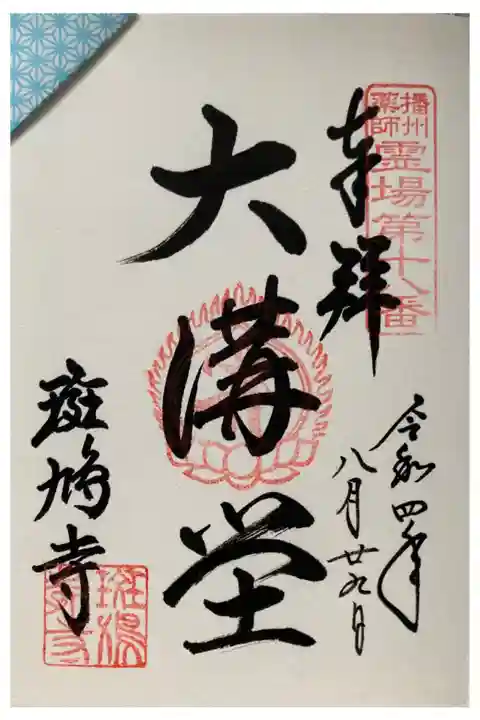 播州
薬師
霊場第十八番
奉拝
令和四年
八月廿九日
大講堂
斑鳩寺
斑鳩
寺